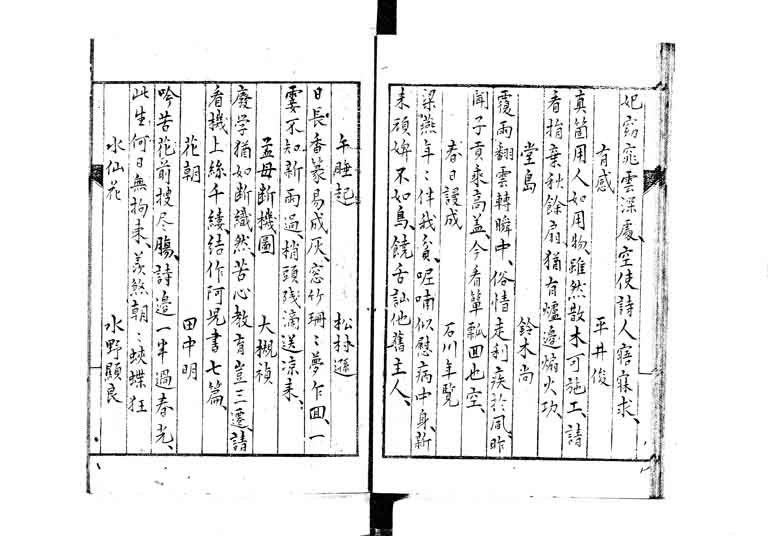 妃窈窕雲深處、空使詩人寤寐求、
有感　平井俊
真箇用人如用物、雖然散木可施工、請
看捐棄秋餘扇、猶有爐邊煽火功、
堂島　鈴木尚
覆雨翻雲轉瞬中、俗情走利疾於風、昨
聞子貢乘高蓋、今看簞瓢回也空、
春日謾成　石川年覽
梁燕年〻伴我貧、呢喃似慰病中身、新
来頑婢不如鳥、饒舌訕他舊主人、
午睡起　松林遜
日長香篆易成灰、窓竹珊〻夢乍回、一
霎不知新雨過、梢頭残滴送凉来、
孟母断機圖　大槻禎
廢学猶如断織然、苦心教育豈三遷、請
看機上絲千縷、結作阿児書七篇
花朝　田中明
吟苦花前捜尽腸、詩邉一半過春光、
此生何日無拘束、羨煞朝〻蛺蝶狂
水仙花　水野顯良